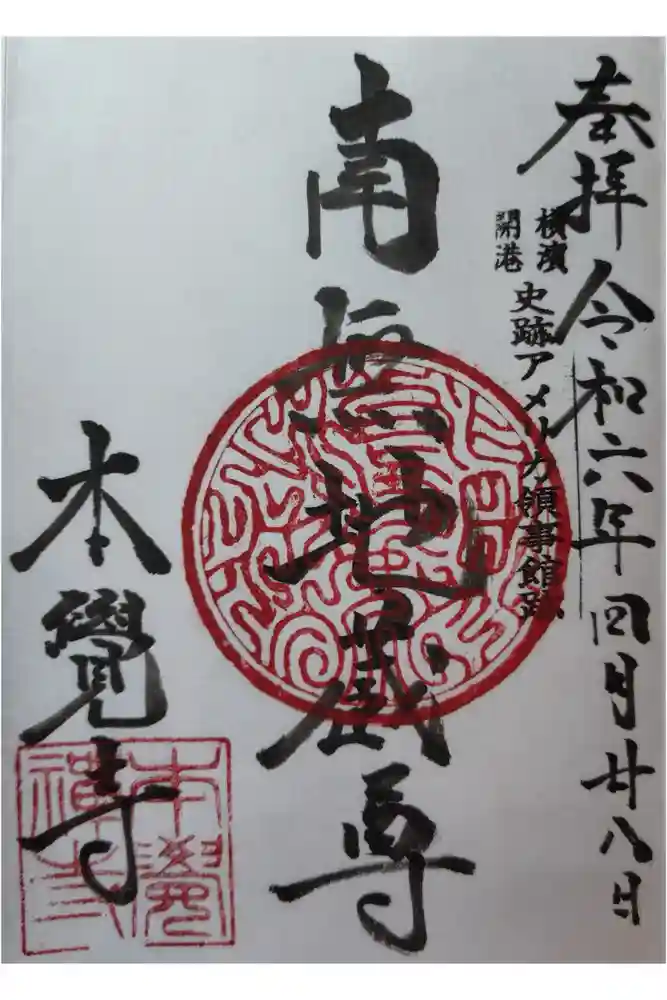 奉拝 令和六年四月廿八日
横濱
開港
史跡アメリカ領事館跡
南無地蔵尊
本覺寺
本覺
禅寺